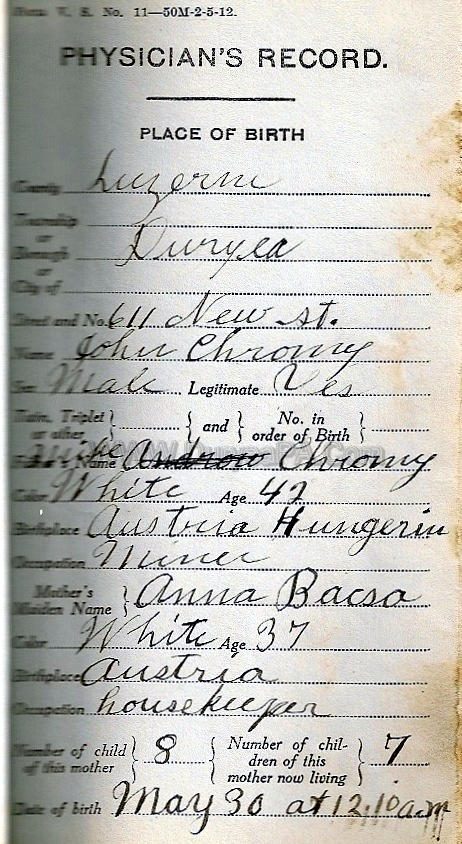 Form V. S. No. 11—50M-2-5-12.
PHYSICIAN'S RECORD.
PLACE OF BIRTH
County Luzerne
Township
or
Borough Duryea
or
City of
Street and No. 611 New st.
Name John Chromy
Sex Male Legitimate Yes
Twin, Triplet or other } { and } { No. in order of Birth }
Father's Name Mike Andrew Chromy
Color White Age 42
Birthplace Austria Hungerin
Occupation Miner
Mother's Maiden Name } Anna Bacsa
Color White Age 37
Birthplace Austria
Occupation housekeeper
Number of child of this mother } 8 { Number of children of this mother now living } 7
Date of birth May 30 at 12.10 a.m